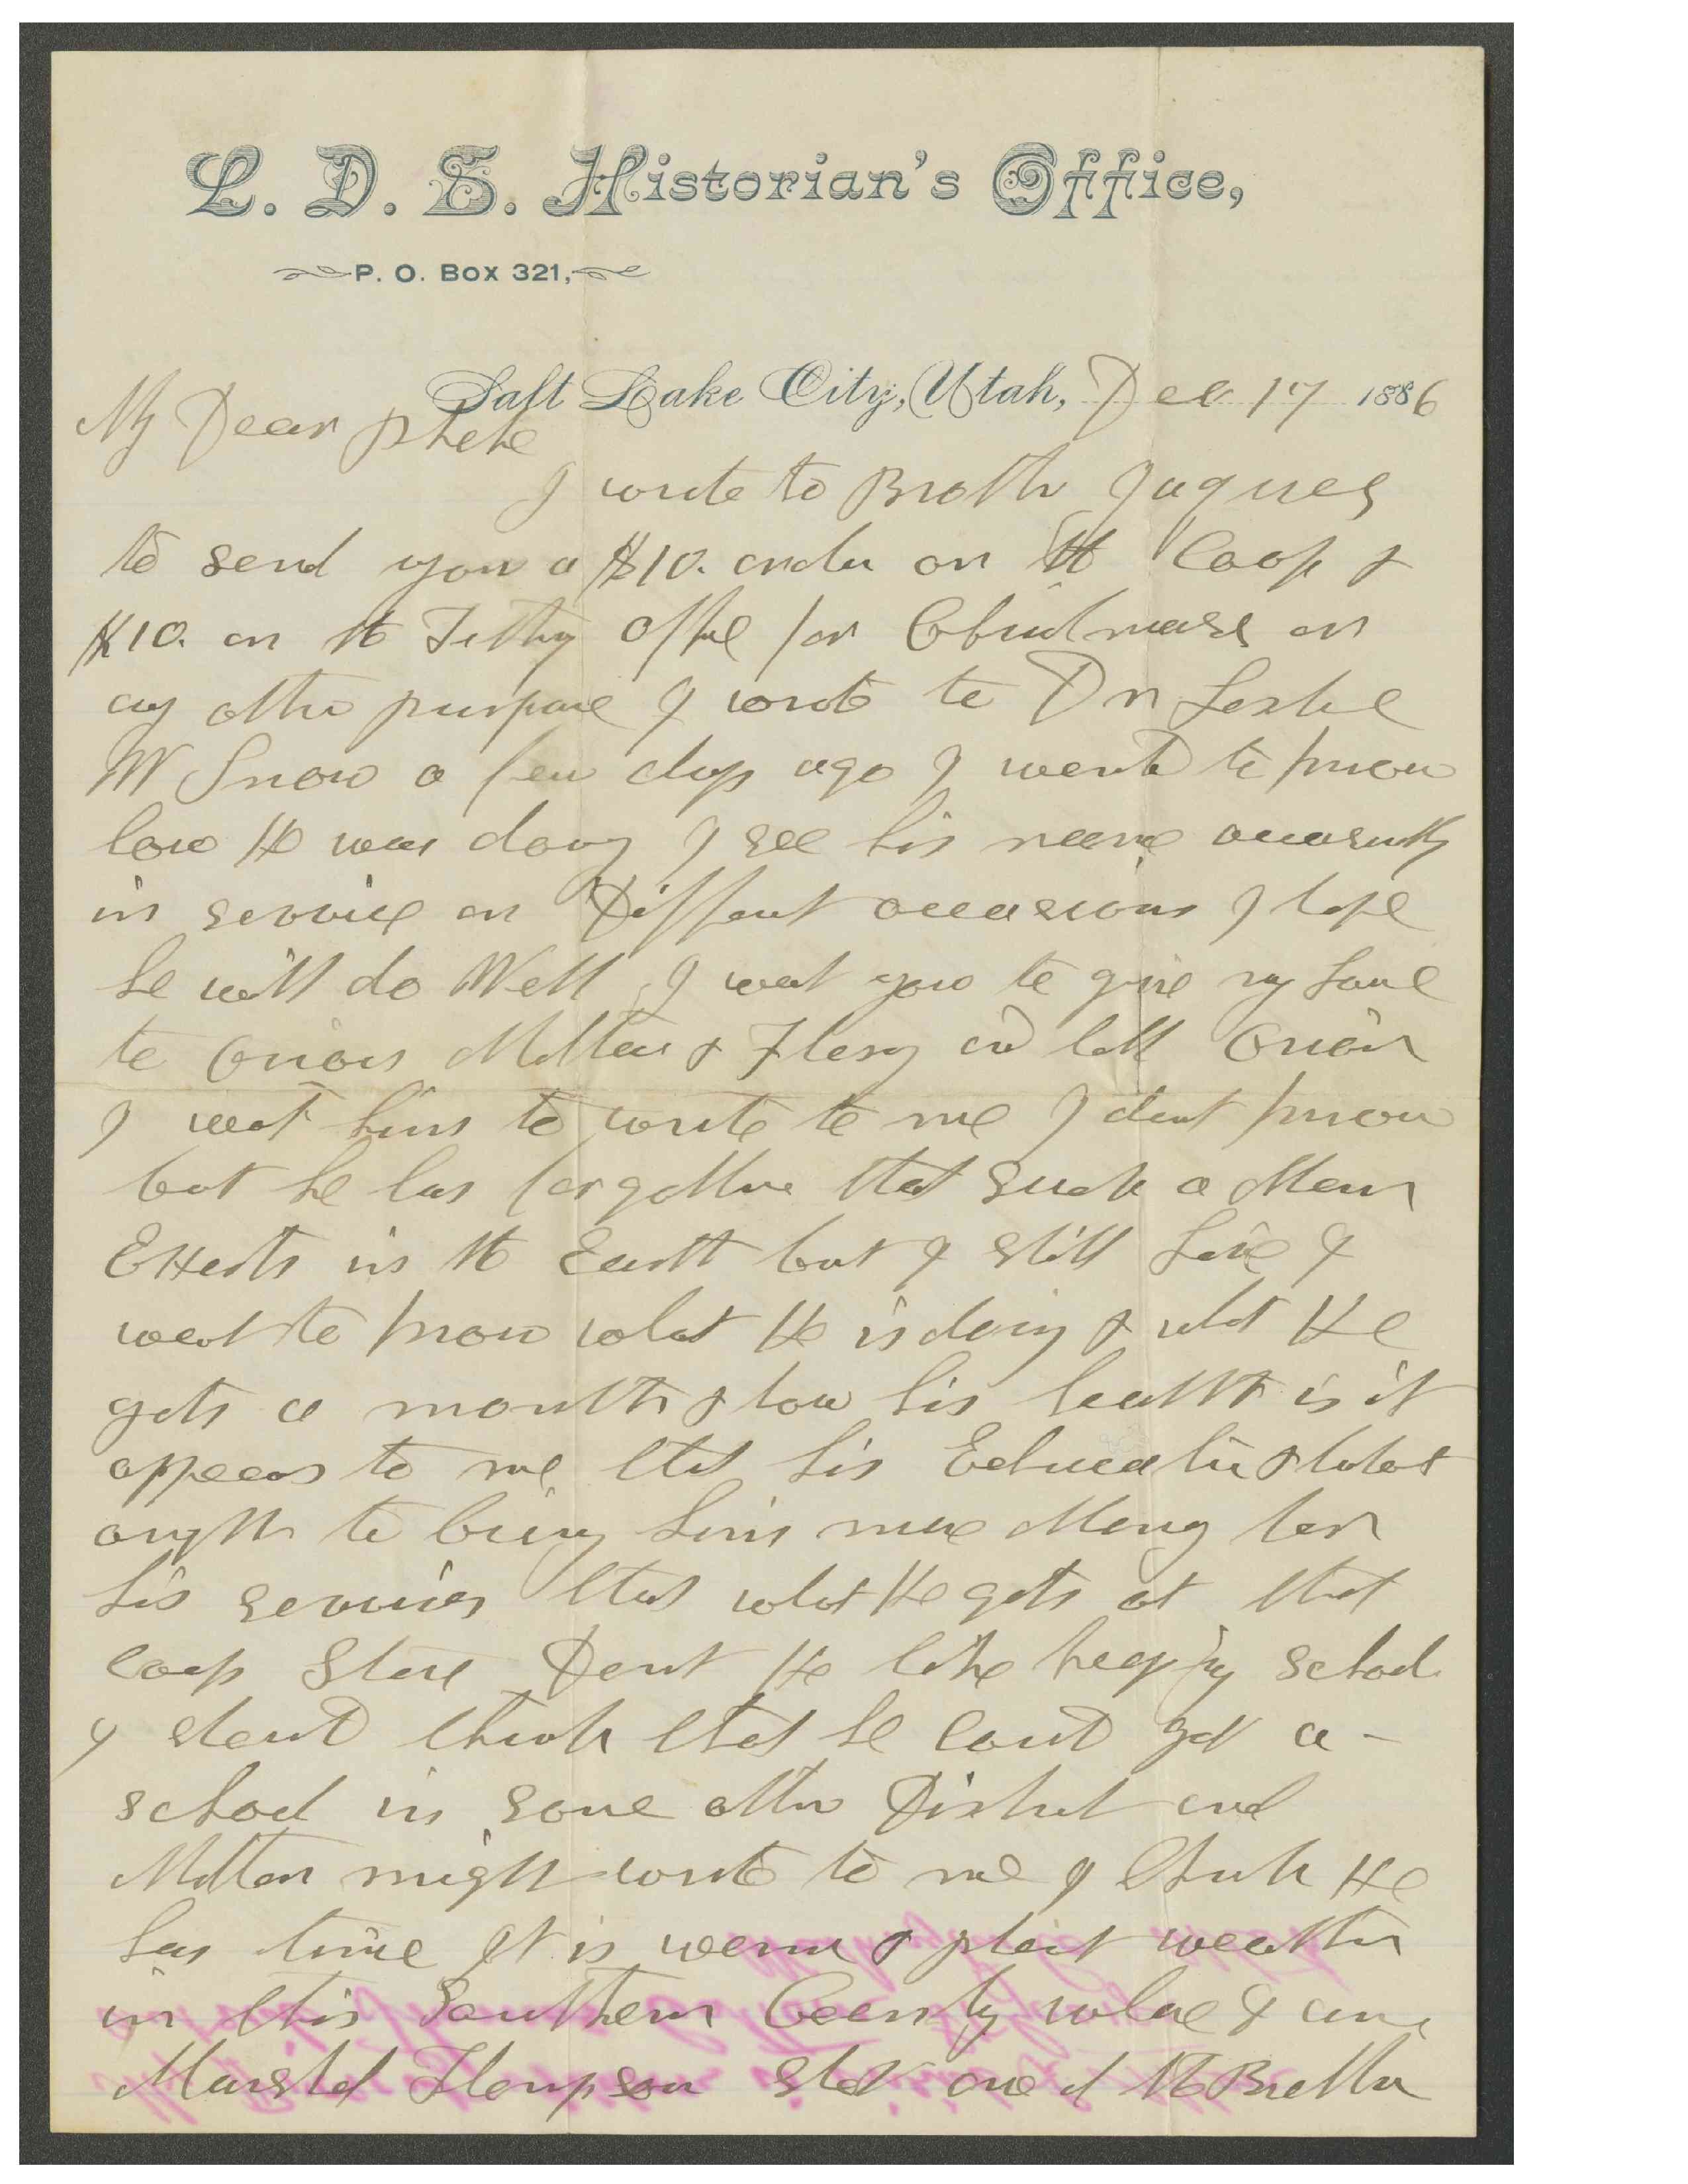 L. D. S. Historian's Office,
P. O. Box 321,
Salt Lake City, Utah, Dec 17 1886
My Dear Phebe
I wrote to Broth Jaques
to send you a $10. order on the Coop &
$10. on the Tithing office for Christmass or
any other purpose I wrote to Dr Leslie
W Snow a few days ago I want to know
how He was doing I see his name
in service on Different occasions I hope
he will do Well I want you to give my Love
to Orion Milton & Flory and tell Orion
I want him to write to me I dont know
but he has forgotten that such a Man
Exists in the Earth but I still Live &
want to know what He is doing & what He
gets a month & how his health is it
appears to me that his Education &
ought to bring him more Money for
his services than what He gets at that
coop Store Dont He like keeping school
I dont think that he cant get a -
school in some other District and
Milton might write to me I think He
has time It is warm & pleast weather
in this Southern County whare I am
Marshal Thompson shot one of the Brethn